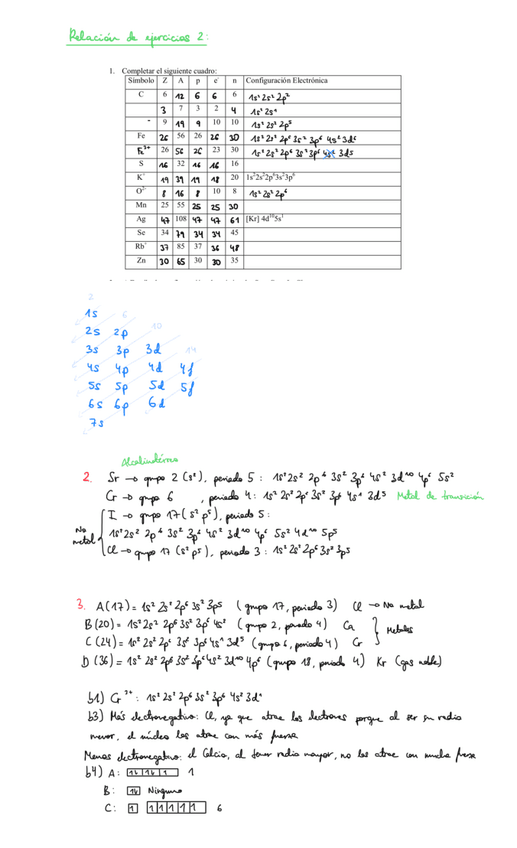 Relación de ejercicios 2:
1. Completar el siguiente cuadro:
Símbolo Z A p e⁻ n Configuración Electrónica
C 6 12 6 6 6 1s² 2s² 2p²
3 7 3 2 4 1s² 2s¹
- 9 19 9 10 10 1s² 2s² 2p⁵
Fe 26 56 26 26 30 1s² 2s² 2p⁶ 3s² 3p⁶ 4s² 3d⁶
Fe³⁺ 26 56 26 23 30 1s² 2s² 2p⁶ 3s² 3p⁶ 3d⁵
S 16 32 16 16 16
K⁺ 19 39 19 18 20 1s²2s²2p⁶3s²3p⁶
O²⁻ 8 16 8 10 8 1s² 2s² 2p⁶
Mn 25 55 25 25 30
Ag 47 108 47 47 61 [Kr] 4d¹⁰5s¹
Se 34 79 34 34 45
Rb⁺ 37 85 37 36 48
Zn 30 65 30 30 35
2
1s 6
2s 2p 10
3s 3p 3d 14
4s 4p 4d 4f
5s 5p 5d 5f
6s 6p 6d
7s
Alcalinotérreo
2. Sr → grupo 2 (s²), periodo 5: 1s² 2s² 2p⁶ 3s² 3p⁶ 4s² 3d¹⁰ 4p⁶ 5s²
Cr → grupo 6 , periodo 4: 1s² 2s² 2p⁶ 3s² 3p⁶ 4s¹ 3d⁵ Metal de transición
I → grupo 17 (s² p⁵), periodo 5:
No metal 1s² 2s² 2p⁶ 3s² 3p⁶ 4s² 3d¹⁰ 4p⁶ 5s² 4d¹⁰ 5p⁵
Cl → grupo 17 (s² p⁵), periodo 3: 1s² 2s² 2p⁶ 3s² 3p⁵
3. A(17) = 1s² 2s² 2p⁶ 3s² 3p⁵ (grupo 17, periodo 3) Cl → No metal
B(20) = 1s² 2s² 2p⁶ 3s² 3p⁶ 4s² (grupo 2, periodo 4) Ca
C(24) = 1s² 2s² 2p⁶ 3s² 3p⁶ 4s¹ 3d⁵ (grupo 6, periodo 4) Cr } Metales
D(36) = 1s² 2s² 2p⁶ 3s² 3p⁶ 4s² 3d¹⁰ 4p⁶ (grupo 18, periodo 4) Kr (gas noble)
b1) Cr³⁺: 1s² 2s² 2p⁶ 3s² 3p⁶ 4s² 3d¹
b3) Más electronegativo: Cl, ya que atrae los electrones porque al ser su radio
menor, el núcleo los atrae con más fuerza
Menos electronegativo: el Calcio, al tener radio mayor, no los atrae con mucha fuerza
b4) A: 1
B: Ninguno
C: 1 1 1 1 1 1 6